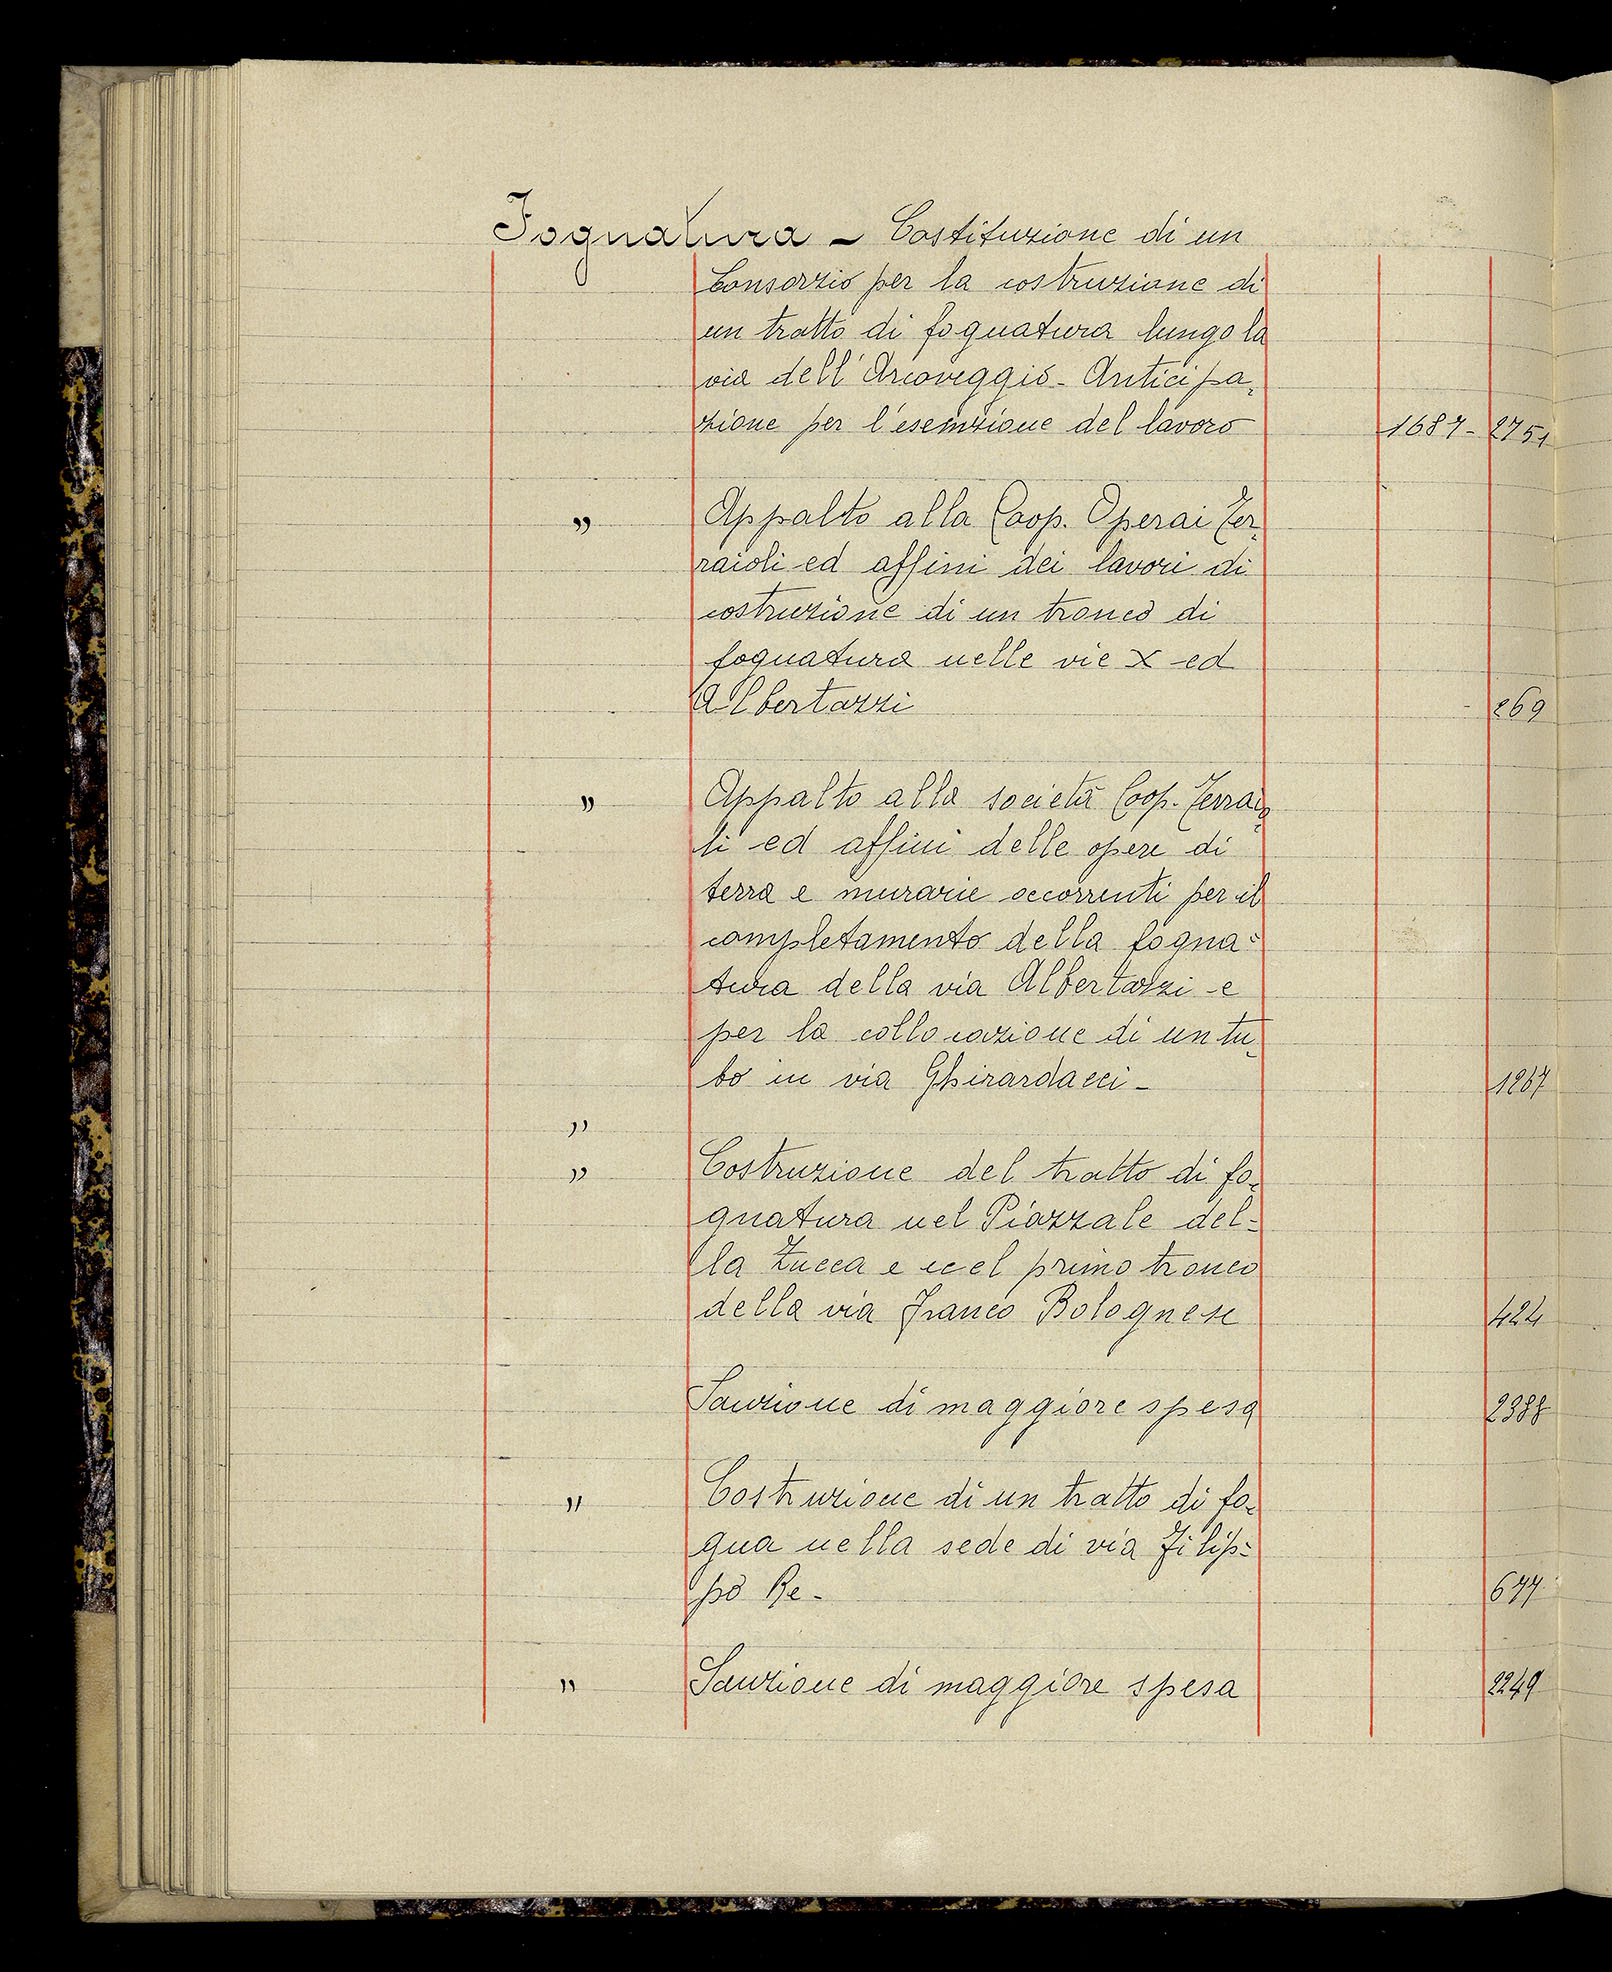 Fognatura - Costituzione di un
Consorzio per la costruzione di
un tratto di fognatura lungo la
via dell'Arcoveggio - Anticipa-
zione per l'esecuzione del lavoro 1687 - 2751
" Appalto alla Coop. Operai Ter-
raioli ed affini dei lavori di
costruzione di un tronco di
fognatura nelle vie X ed
Albertazzi 269
" Appalto alla società Coop. Terraio-
li ed affini delle opere di
terra e murarie occorrenti per il
completamento della fogna-
tura della via Albertazzi e
per la collocazione di un tu-
bo in via Ghirardacci - 1267
"
" Costruzione del tratto di fo-
gnatura nel Piazzale del-
la Zucca e nel primo tronco
della via Franco Bolognese 424
Sanzione di maggiore spesa 2388
" Costruzione di un tratto di fo-
gna nella sede di via Filip-
po Re - 677
" Sanzione di maggiore spesa 2249